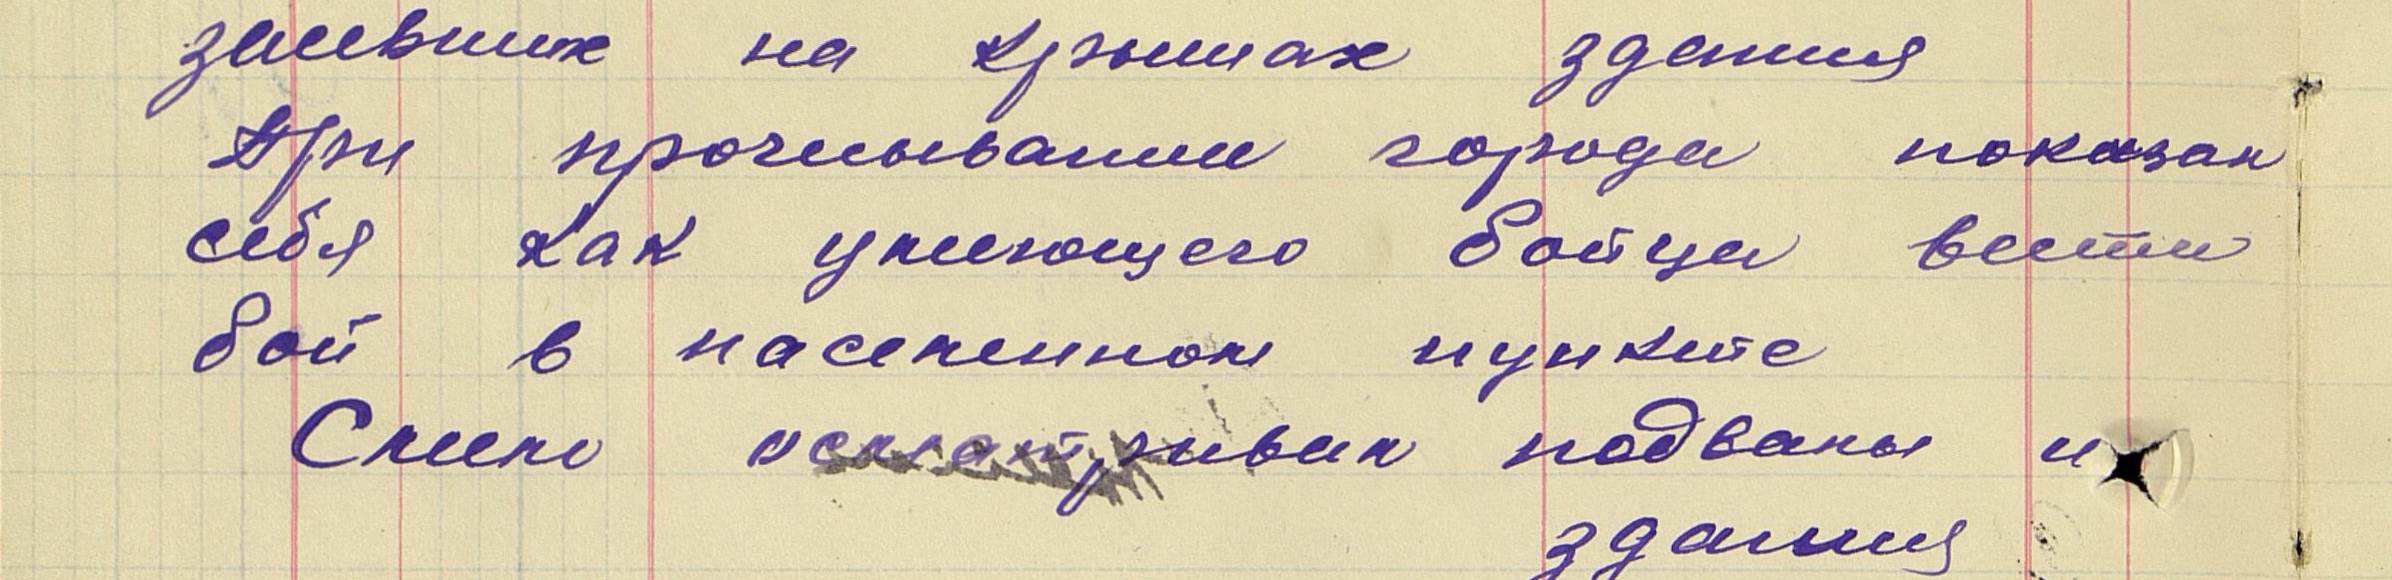 засевших на крышах здания
При прочесывании города показал
себя как умеющего бойца вести
бой в населенном пункте
Смело осматривал подвалы и
здания